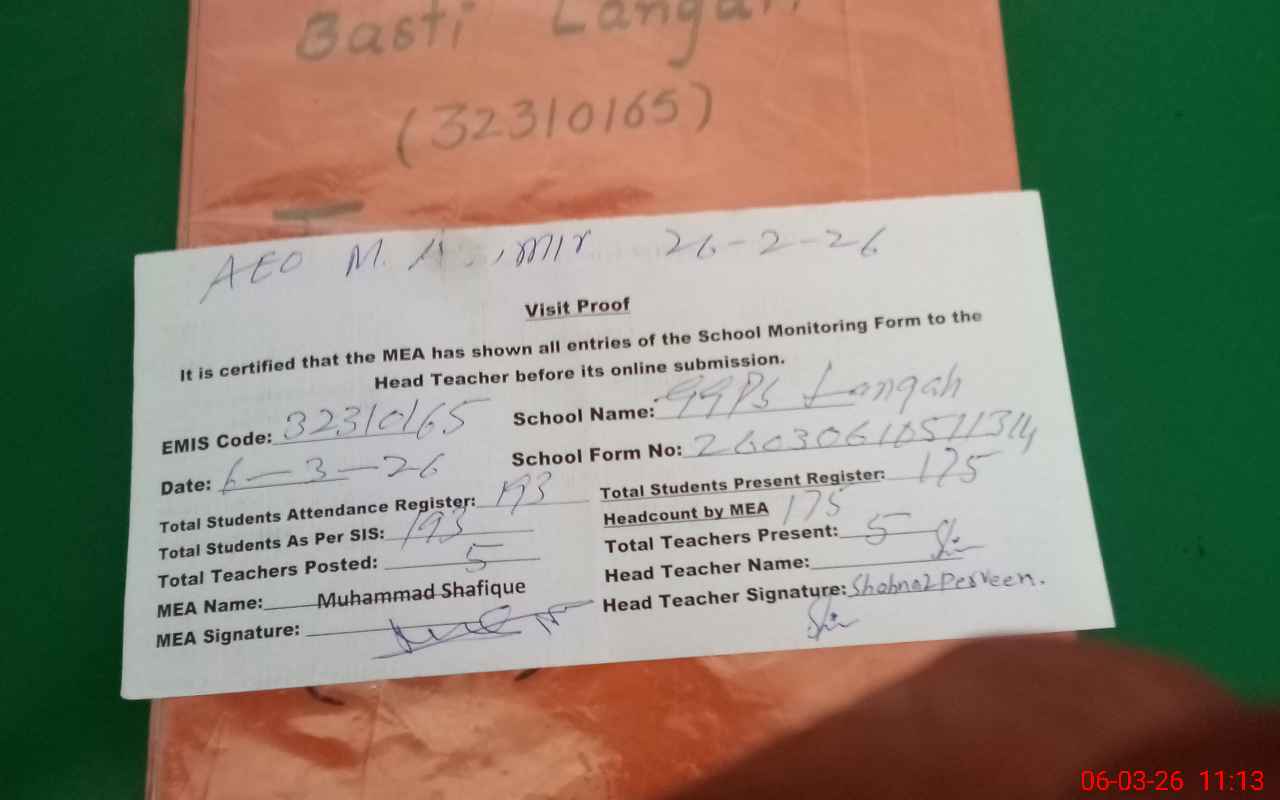 Basti Langah
(32310165)
AEO M. 26-2-26
Visit Proof
It is certified that the MEA has shown all entries of the School Monitoring Form to the
Head Teacher before its online submission.
EMIS Code: 32310165 School Name: GGPS Langah
Date: 6-3-26 School Form No:
Total Students Attendance Register: 193 Total Students Present Register: 175
Total Students As Per SIS: 193 Headcount by MEA 175
Total Teachers Posted: 5 Total Teachers Present: 5
MEA Name: Muhammad Shafique Head Teacher Name:
MEA Signature: Head Teacher Signature: Shabnaz Perveen.
06-03-26 11:13